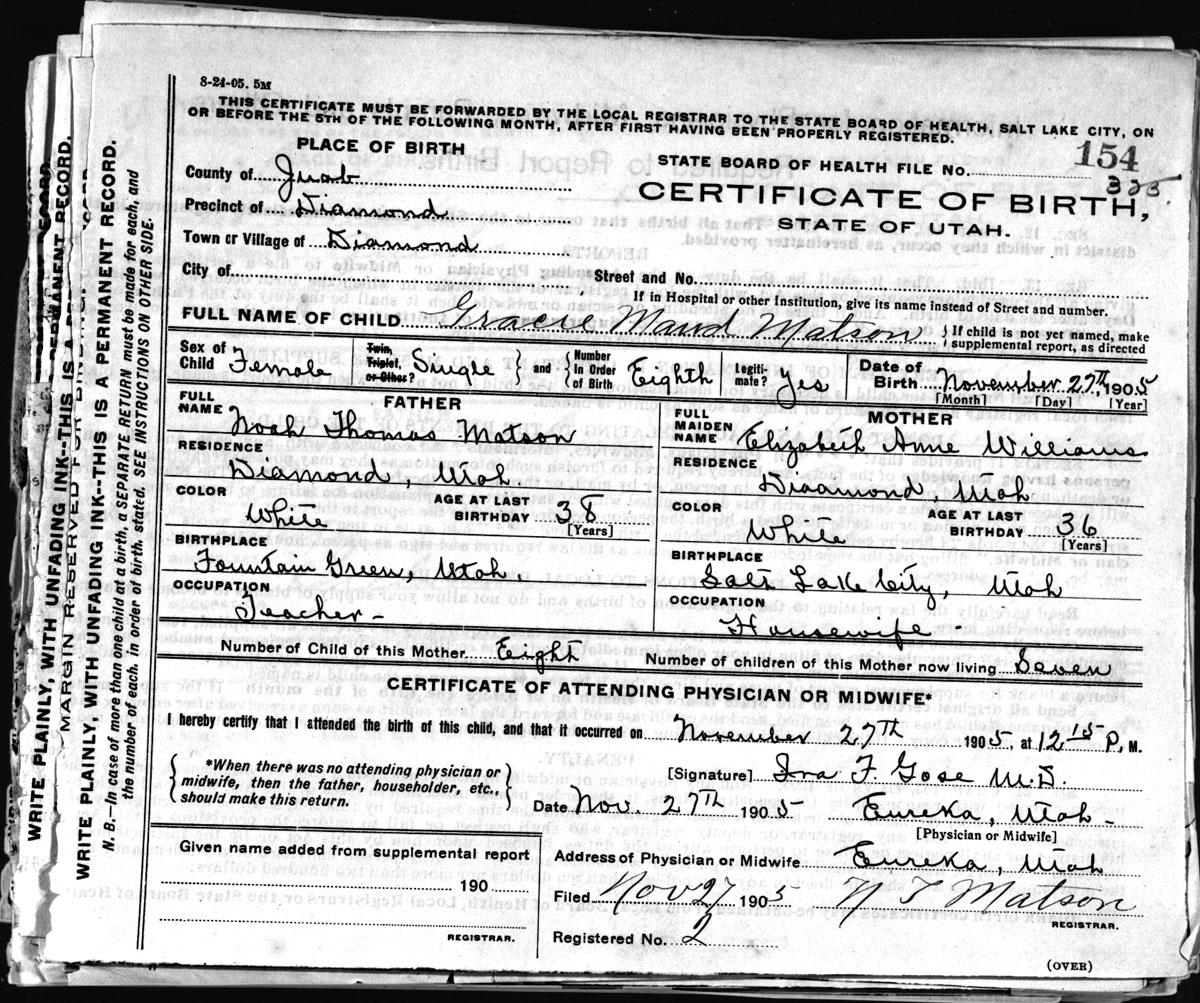 8-24-05. 5M
THIS CERTIFICATE MUST BE FORWARDED BY THE LOCAL REGISTRAR TO THE STATE BOARD OF HEALTH, SALT LAKE CITY, ON
OR BEFORE THE 5TH OF THE FOLLOWING MONTH, AFTER FIRST HAVING BEEN PROPERLY REGISTERED.
PLACE OF BIRTH
STATE BOARD OF HEALTH FILE NO. 154
325
County of Juab
CERTIFICATE OF BIRTH,
Precinct of Diamond
STATE OF UTAH.
Town or Village of Diamond
City of Street and No.
If in Hospital or other Institution, give its name instead of Street and number.
FULL NAME OF CHILD Gracie Maud Matson { If child is not yet named, make supplemental report, as directed
Sex of Child Female Twin, Triplet, or Other? Single and { Number in Order of Birth Eighth Legiti-mate? Yes Date of Birth November 27th, 1905
[Month] [Day] [Year]
FATHER
FULL NAME Noah Thomas Matson
RESIDENCE
Diamond, Utah.
COLOR White AGE AT LAST BIRTHDAY 38
[Years]
BIRTHPLACE
Fountain Green, Utah
OCCUPATION
Teacher -
MOTHER
FULL MAIDEN NAME Elizabeth Anne Williams
RESIDENCE
Diaamond, Utah
COLOR White AGE AT LAST BIRTHDAY 36
[Years]
BIRTHPLACE
Salt Lake City, Utah
OCCUPATION
Housewife -
Number of Child of this Mother Eight Number of children of this Mother now living Seven
CERTIFICATE OF ATTENDING PHYSICIAN OR MIDWIFE*
I hereby certify that I attended the birth of this child, and that it occurred on November 27th 1905, at 12 15 P, M.
{ *When there was no attending physician or
midwife, then the father, householder, etc.,
should make this return. }
[Signature] Ira F. Gose M.D.
Date Nov. 27th 1905 Eureka, Utah -
[Physician or Midwife]
Given name added from supplemental report
190
REGISTRAR.
Address of Physician or Midwife Eureka, Utah
Filed Nov 27 1905 N T Matson
REGISTRAR.
Registered No. 2
(OVER)
WRITE PLAINLY, WITH UNFADING INK--THIS IS A PERMANENT RECORD.
MARGIN RESERVED FOR
WRITE PLAINLY, WITH UNFADING INK--THIS IS A PERMANENT RECORD.
N. B.—In case of more than one child at a birth, a SEPARATE RETURN must be made for each, and
the number of each, in order of birth, stated. SEE INSTRUCTIONS ON OTHER SIDE.